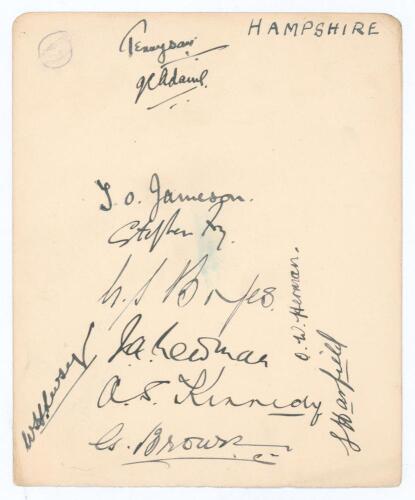 HAMPSHIRE
Tennyson
G C Adams.
T. O. Jameson.
Stephen Fry.
G. S. Boyes.
J. A. Newman
A. S. Kennedy
G. Brown
O. W. Herman.
L Harfield